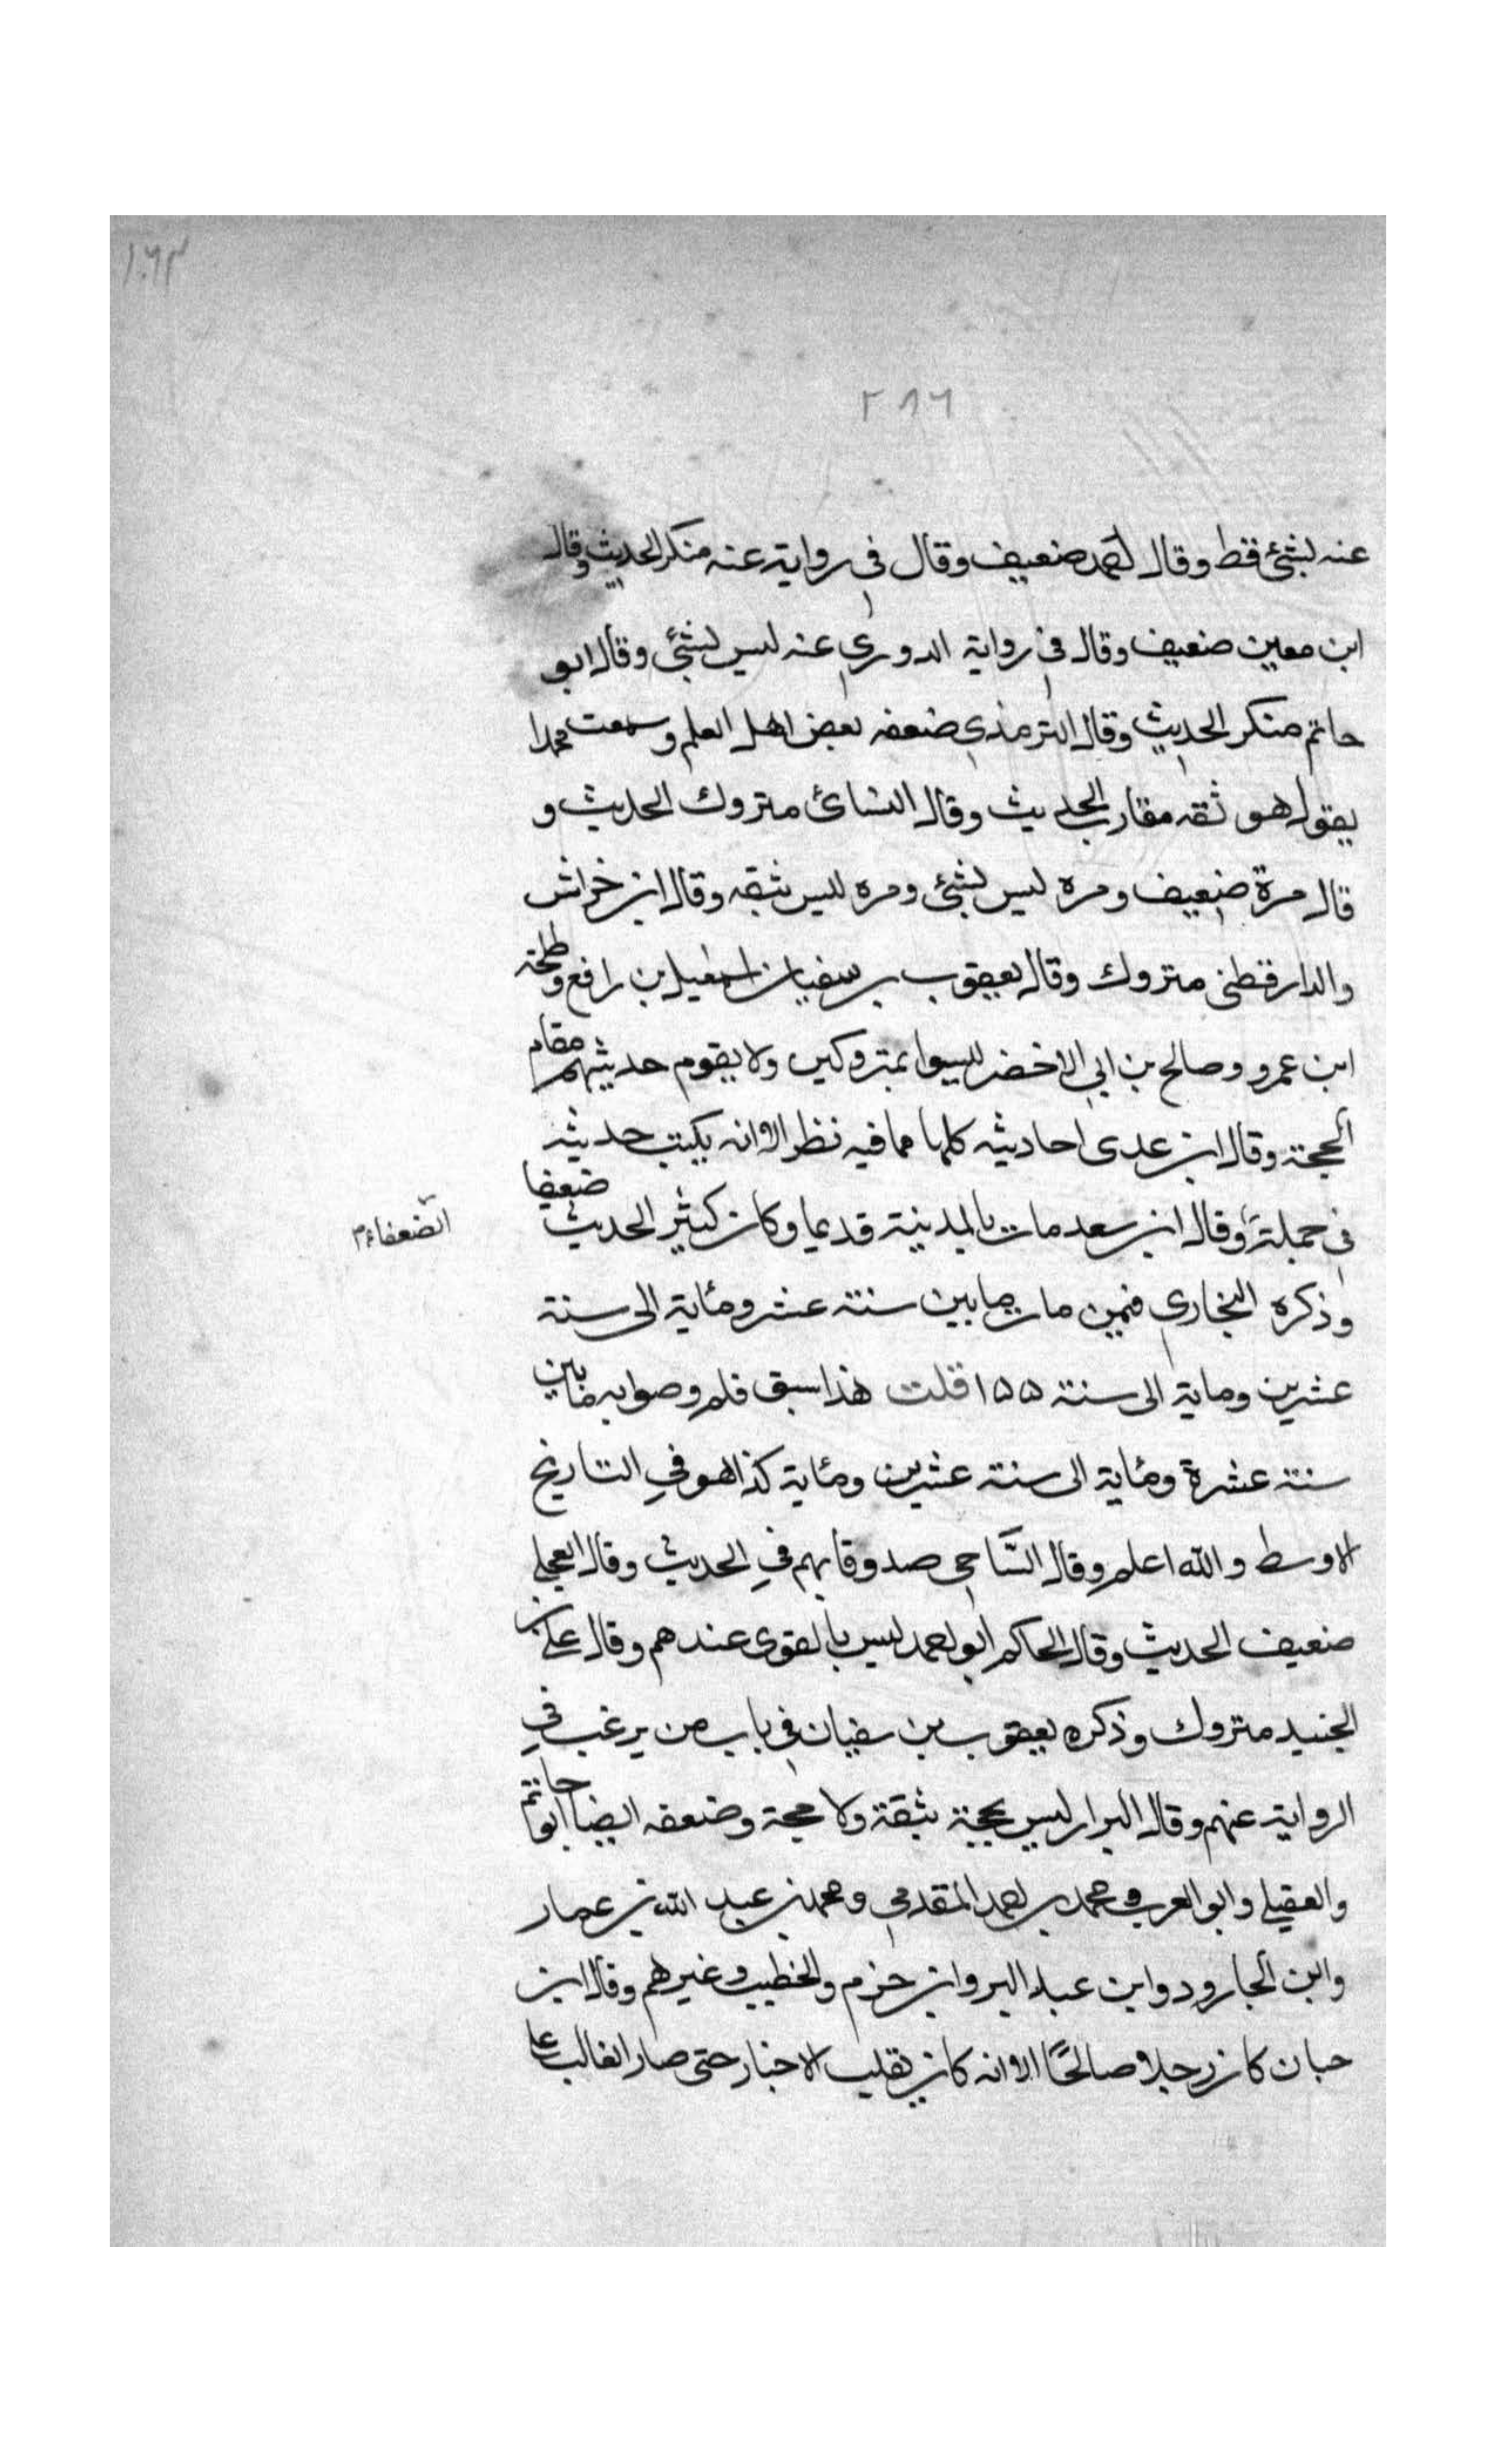 ١٠٦٣
٢٨٦
عنه بشئ قط وقال احمد ضعيف وقال فى رواية عنه منكر الحديث وقال
ابن معين ضعيف وقال في رواية الدوري عنه ليس بشئ وقال ابو
حاتم منكر الحديث وقال الترمذي ضعفه بعض اهل العلم وسمعت محمدا
يقول هو ثقه مقارب الحديث وقال النسائ متروك الحديث و
قال مرة ضعيف ومره ليس بشئ ومره ليس بثقه وقال ابن خراش
والدارقطني متروك وقال يعقوب بن سفيان اسمعيل بن رافع وطلحة
ابن عمرو وصالح بن ابي الاخضر ليسوا بمتروكين ولا يقوم حديثهم مقام
الحجة وقال ابن عدى احاديثه كلها مما فيه نظر الا انه يكتب حديثه
في جملة وقال ابن سعد مات بالمدينة قديما وكان كثير الحديث ضعيفا
الضعفاء م
وذكره البخاري فيمن مات ما بين سنة عشر ومئاية الى سنة
عشرين وماية الى سنة ١٥٥ قلت هذا سبق قلم وصوابه ما بين
سنة عشرة ومئاية الى سنة عشرين ومئاية كذا هو في التاريخ
الاوسط والله اعلم وقال السَّاجي صدوق يهم في الحديث وقال العجلي
ضعيف الحديث وقال الحاكم ابو احمد ليس بالقوى عندهم وقال علي بن
الجنيد متروك وذكره يعقوب بن سفيان في باب من يرغب في
الرواية عنهم وقال البزار ليس بحجة بثقة ولا حجة وضعفه ايضا ابو حاتم
والعقيلي وابو العرب ومحمد بن احمد المقدمي ومحمد بن عبد الله بن عمار
وابن الجارود وابن عبد البر وابن حزم والخطيب وغيرهم وقال ابن
حبان كان رجلا صالحًا الا انه كان يقلب الاخبار حتى صار الغالب على